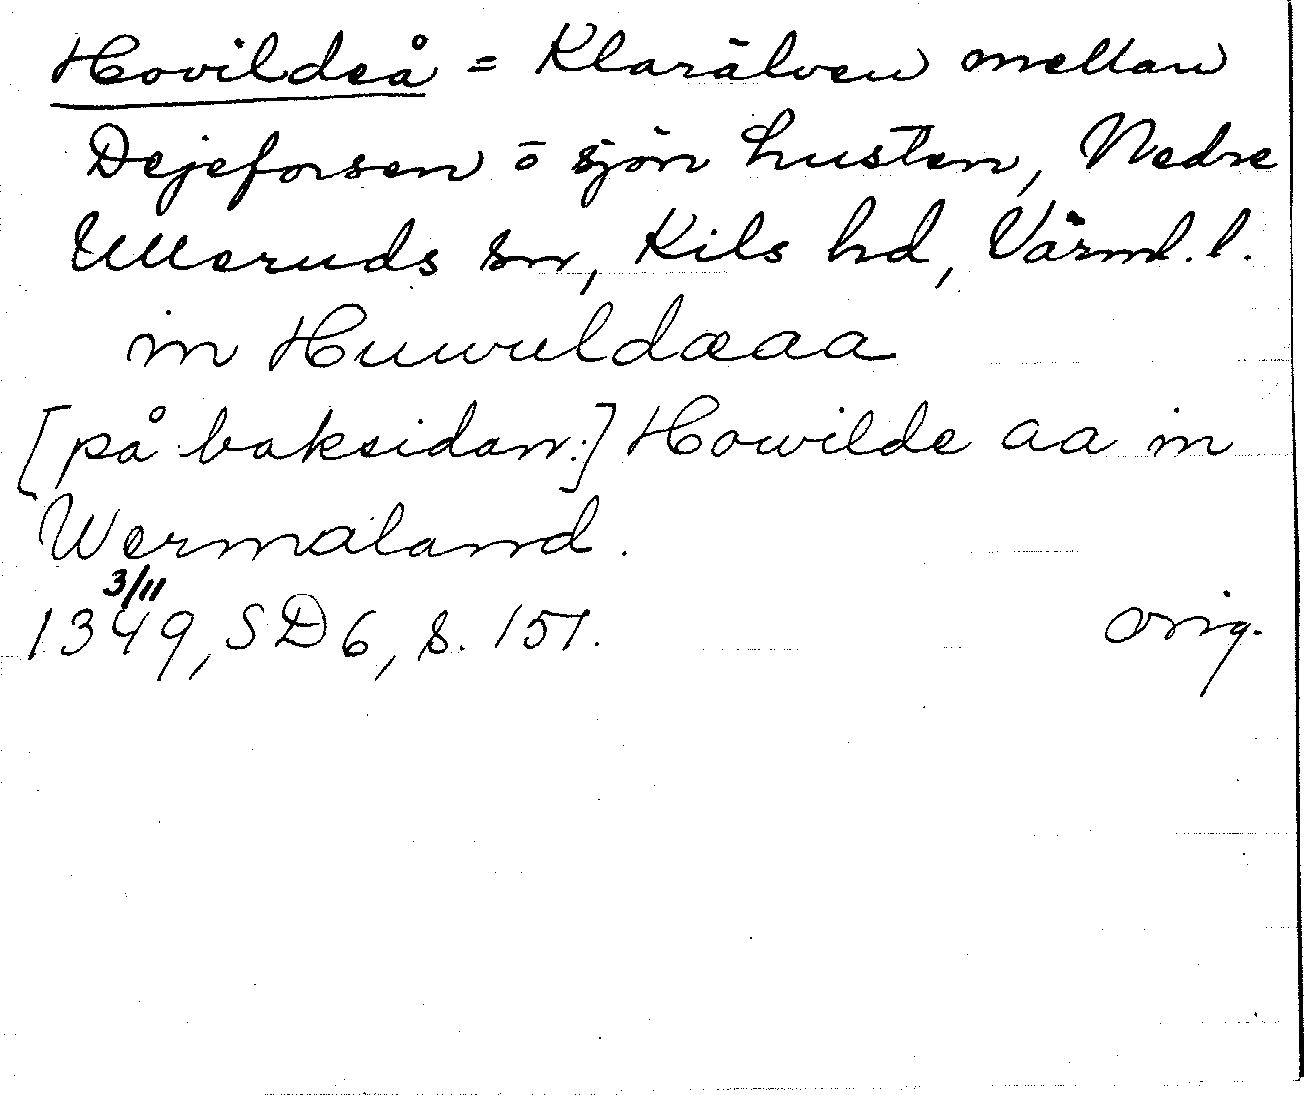 Hovildeå = Klarälven mellan
Dejeforsen o sjön Lusten, Nedre
Ulleruds sn, Kils hd, Värml. l.
in Huwuldæaa
[på baksidan:] Howilde aa in
Wermaland.
3/11
1349, SD 6, s. 151. orig.